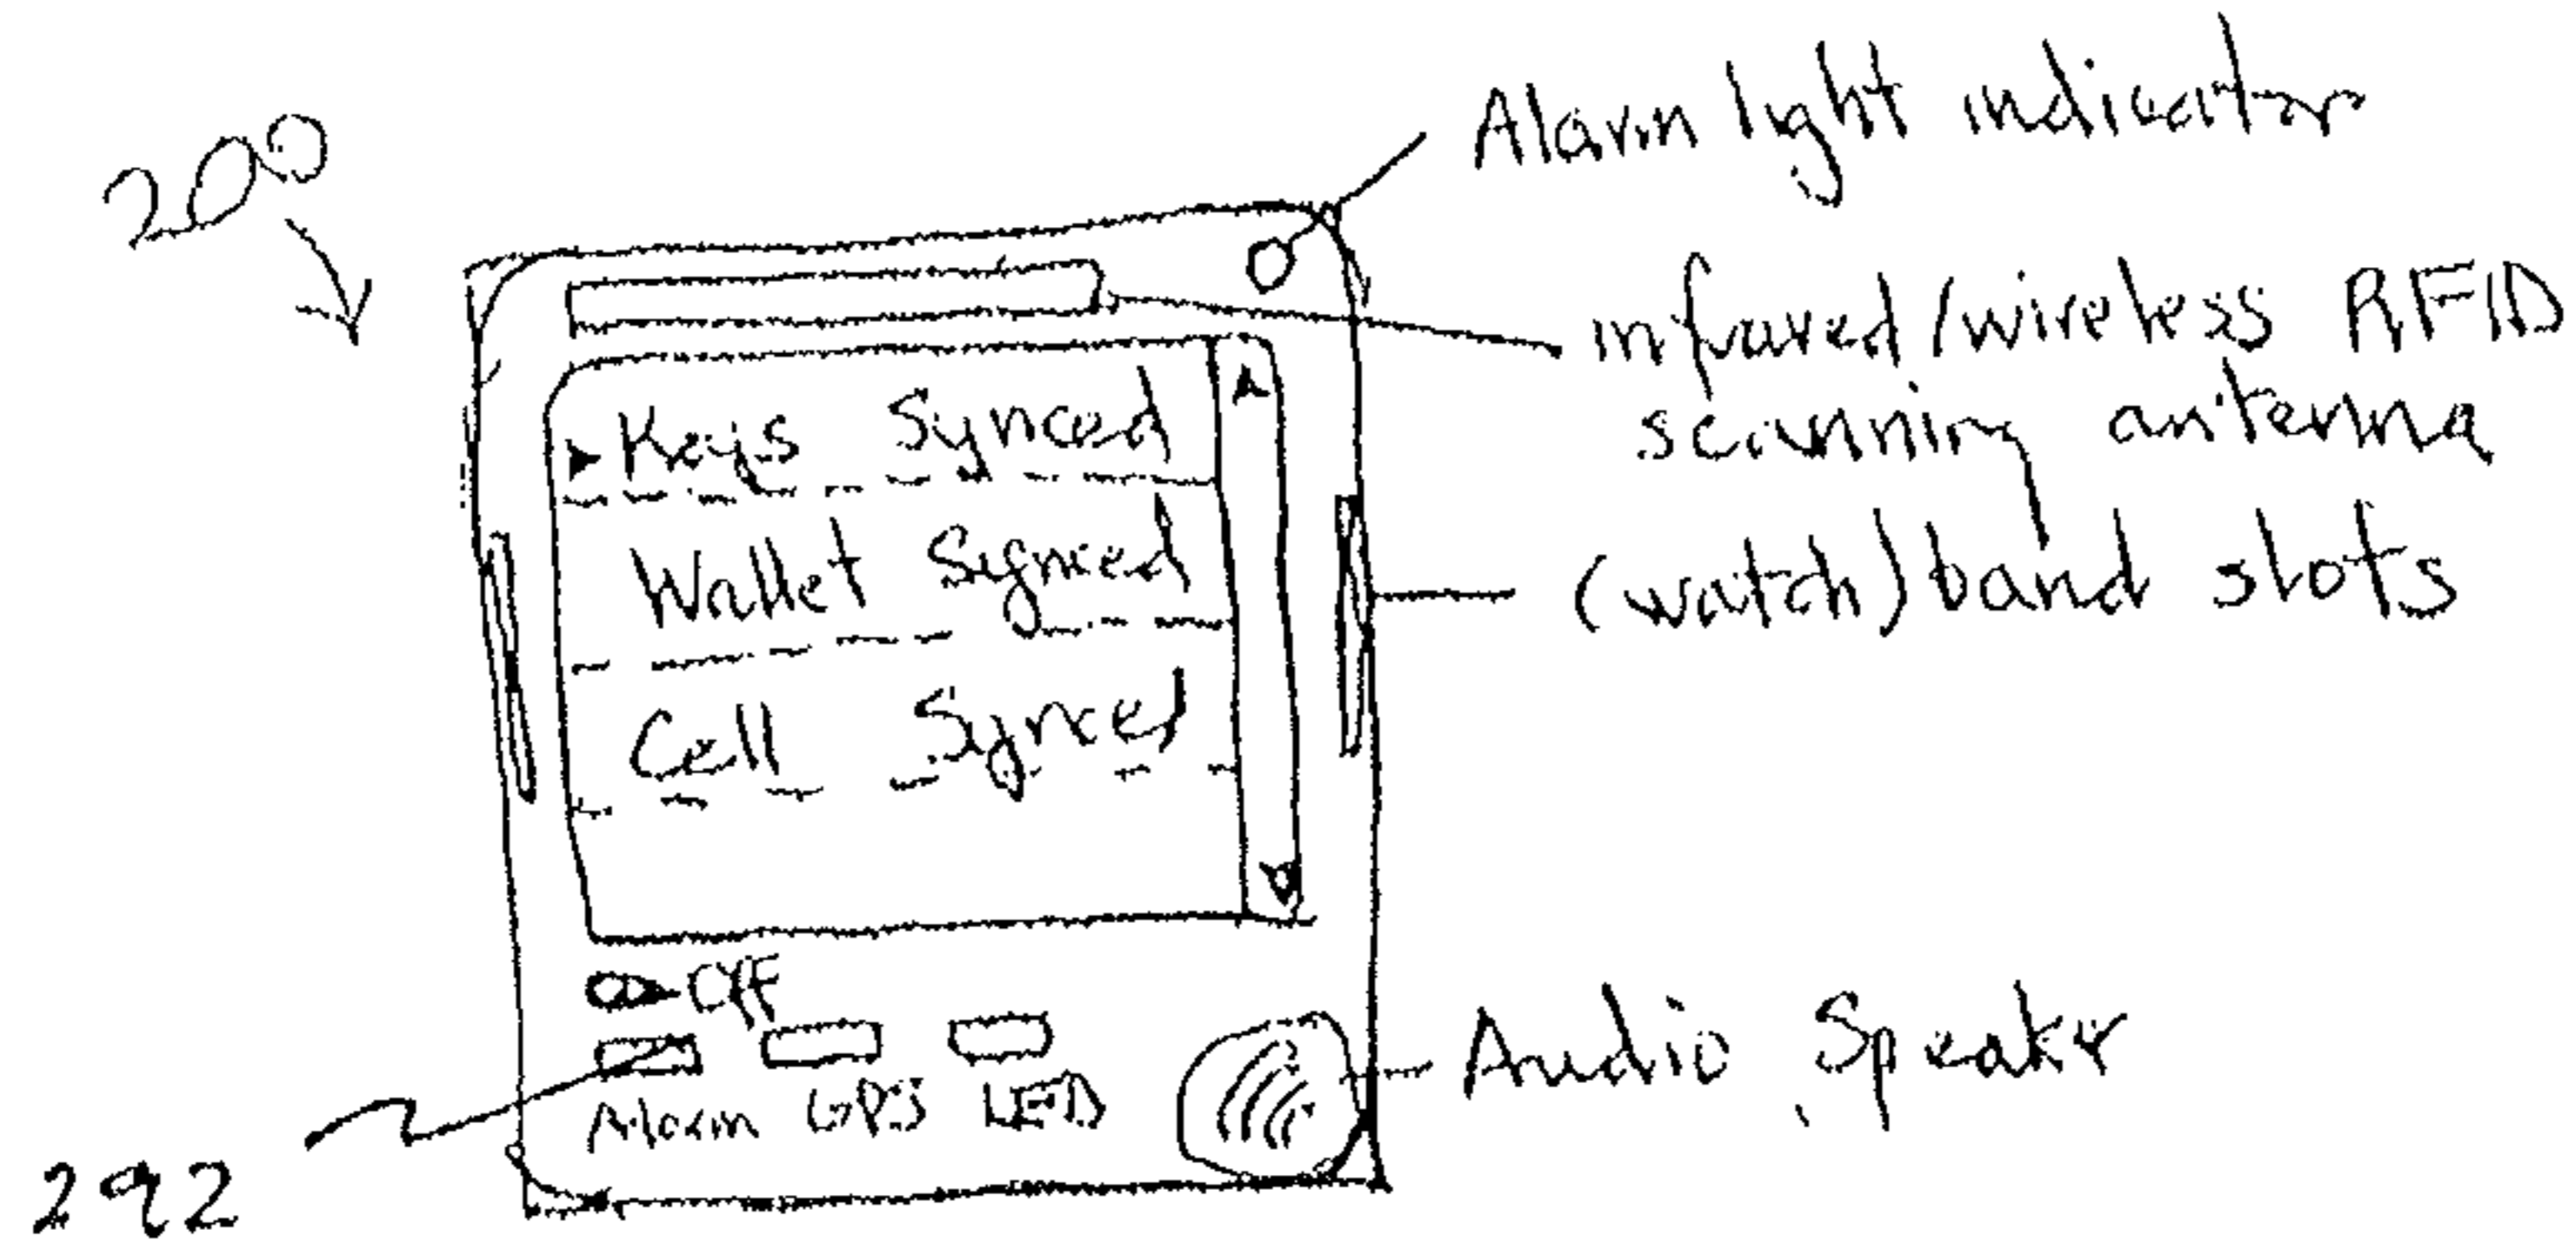 200
Alarm light indicator
infrared/wireless RFID
scanning antenna
(watch) band slots
Keys Synced
Wallet Synced
Cell Synced
Off
Alarm GPS LED
Audio Speaker
292